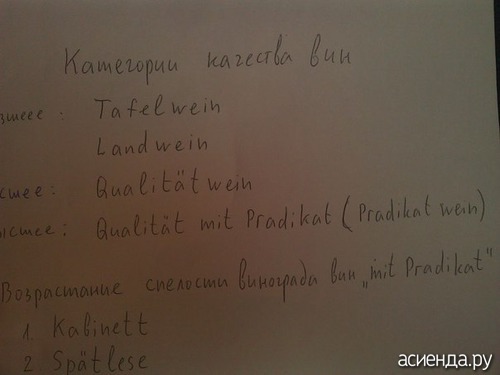 Категории качества вин
зшеее: Tafelwein
Landwein
сшее: Qualität wein
ысшее: Qualität mit Pradikat (Pradikat wein)
Возрастание спелости винограда вин „mit Pradikat"
1 Kabinett
2. Spätlese
асиенда.ру